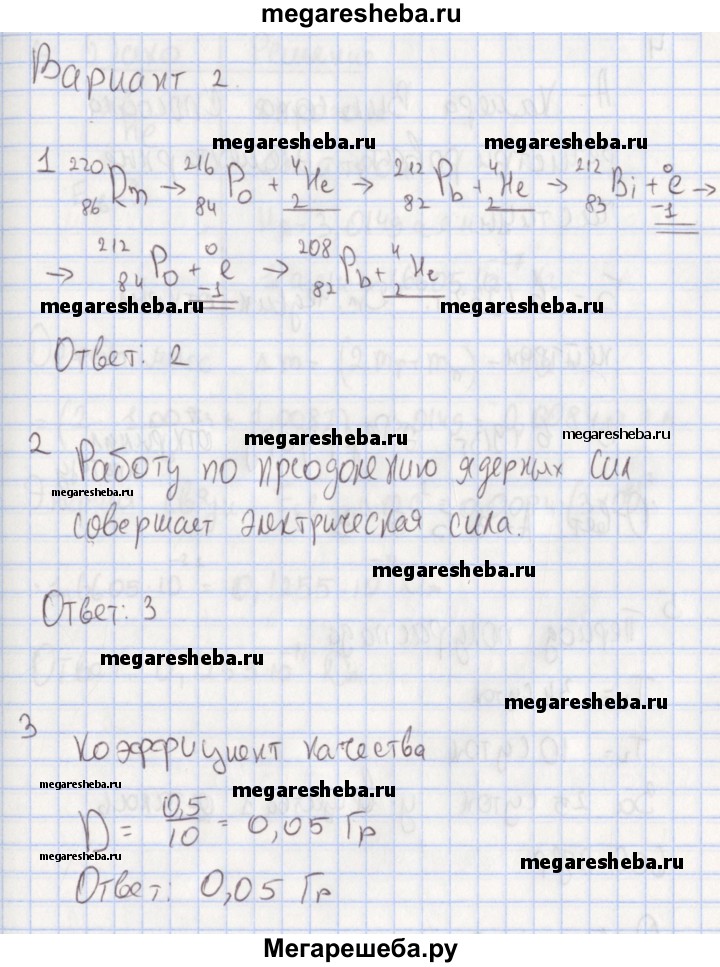 megaresheba.ru
Вариант 2.
megaresheba.ru megaresheba.ru
1 ²²⁰₈₆Rn → ²¹⁶₈₄Po + ⁴₂He → ²¹²₈₂Pb + ⁴₂He → ²¹²₈₃Bi + ⁰₋₁e →
→ ²¹²₈₄Po + ⁰₋₁e → ²⁰⁸₈₂Pb + ⁴₂He
megaresheba.ru megaresheba.ru
Ответ: 2
megaresheba.ru megaresheba.ru
2 Работу по преодонению ядерных сил
megaresheba.ru
совершает электрическая сила.
megaresheba.ru
Ответ: 3
megaresheba.ru
megaresheba.ru
3
Коэффициент качества
megaresheba.ru megaresheba.ru
D = 0,5/10 = 0,05 Гр
megaresheba.ru megaresheba.ru
Ответ: 0,05 Гр
Мегарешеба.ру